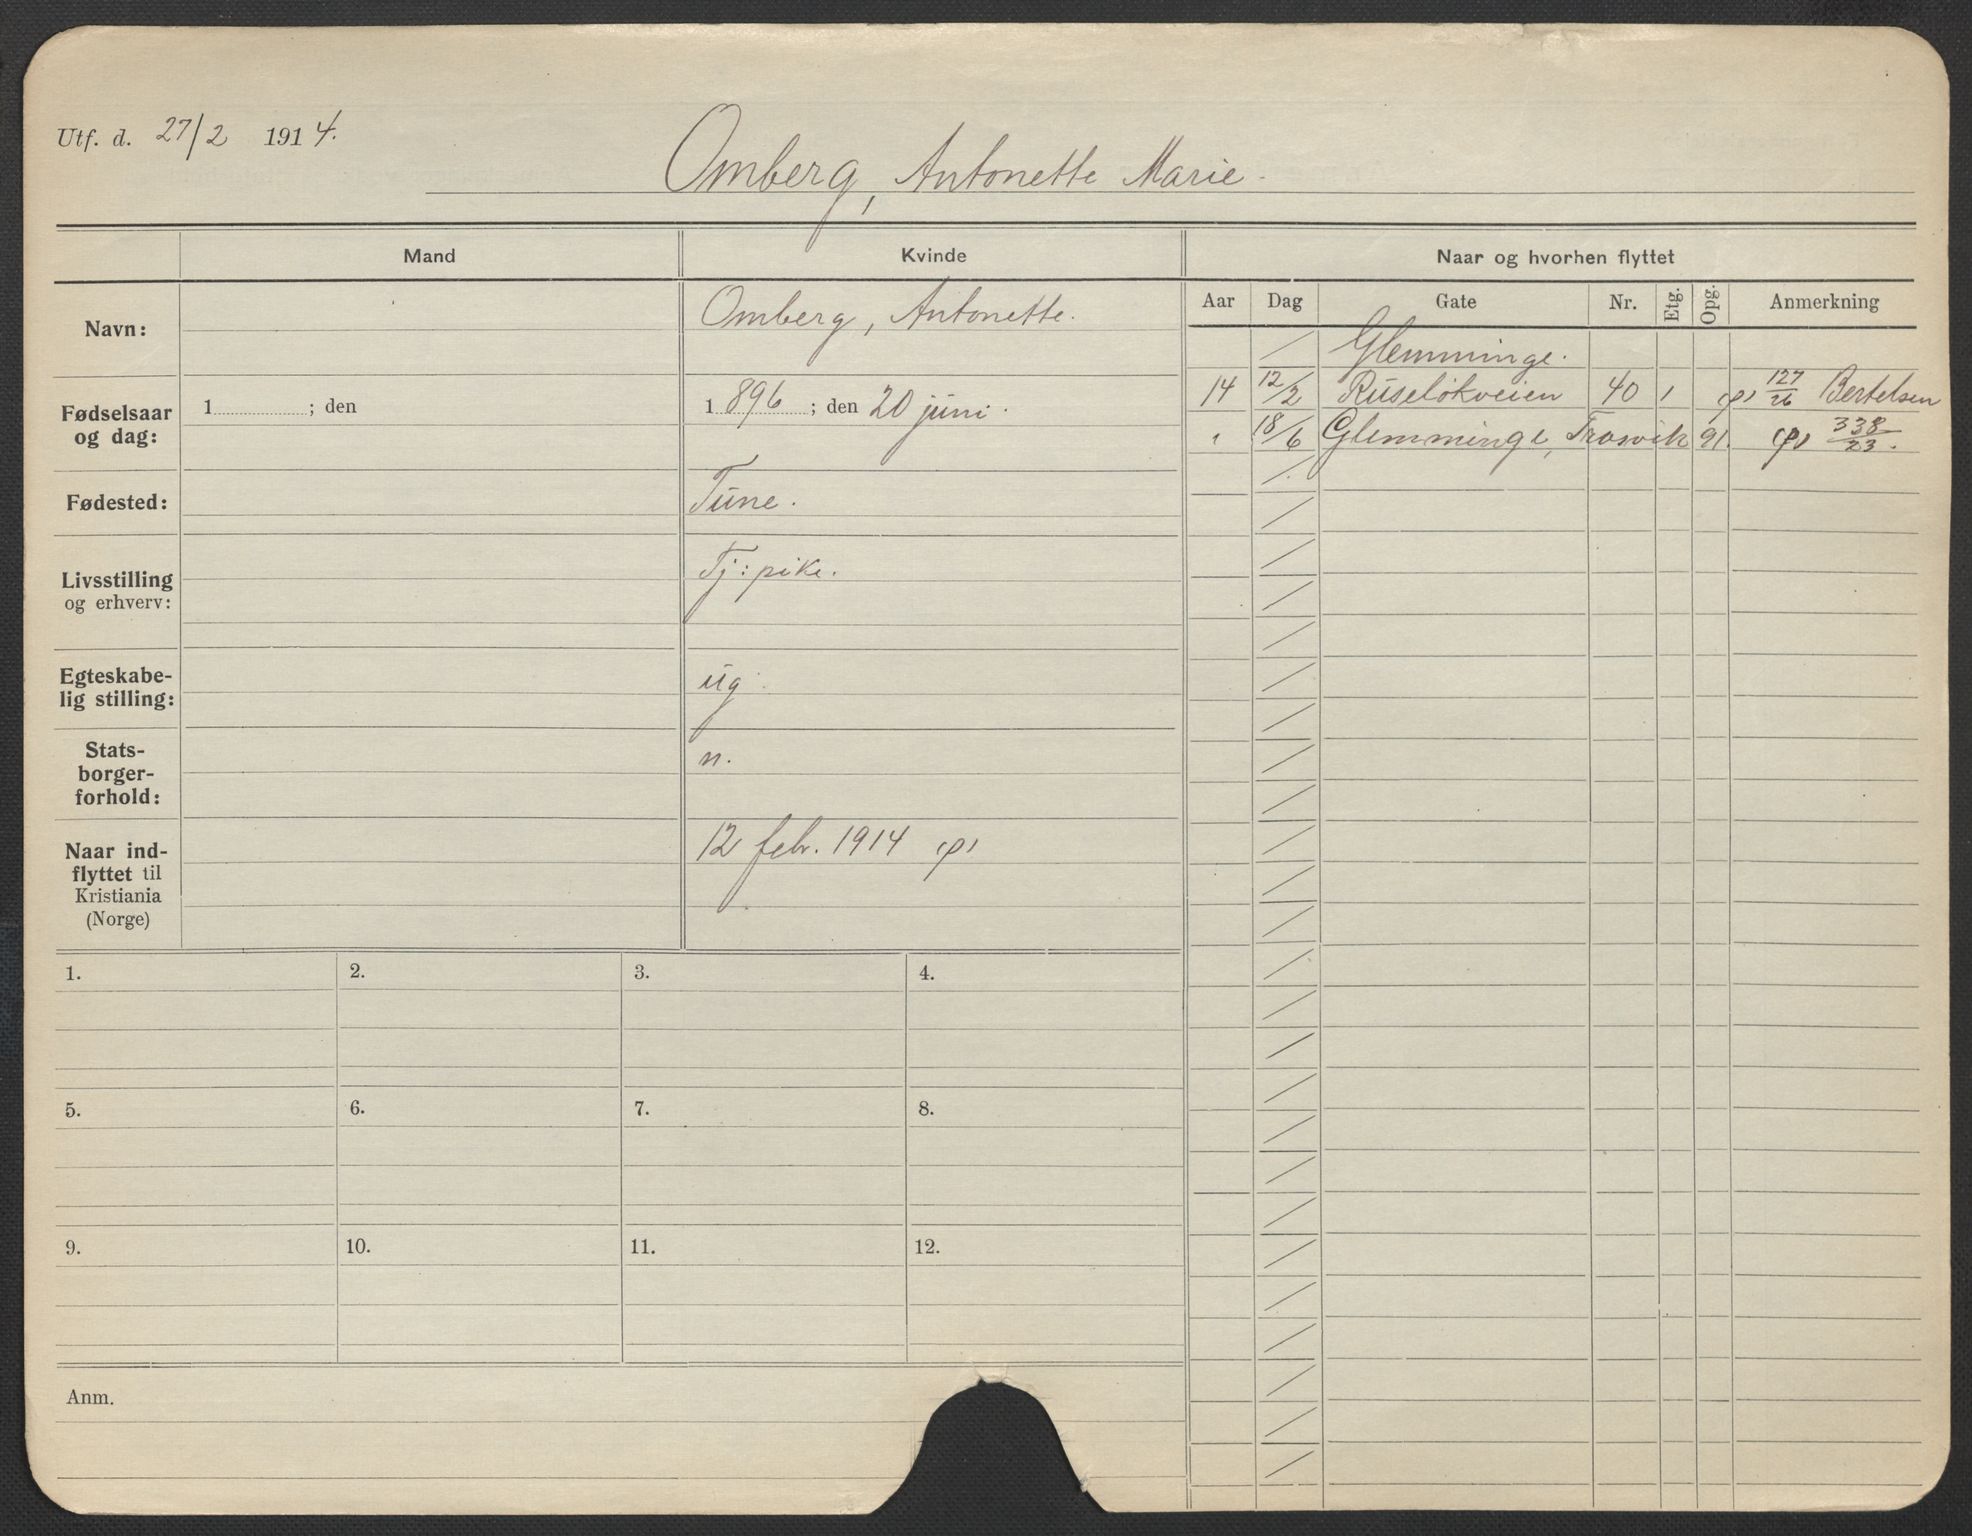 Utf. d. 27/2 1914.
Omberg, Antonette Marie.
Mand
Kvinde
Naar og hvorhen flyttet
Navn:
Omberg, Antonette.
Fødselsaar og dag:
1 ; den
1896 ; den 20 juni.
Fødested:
Tune.
Livsstilling og erhverv:
Tj: pike.
Egteskabelig stilling:
ug.
Statsborgerforhold:
n.
Naar indflyttet til Kristiania (Norge)
12 febr. 1914
Aar Dag Gate Nr. Etg. Opg. Anmerkning
/ Glemminge.
14 12/2 Ruseløkveien 40 1 127/26 Bertelsen
" 18/6 Glemminge, Trosvik 91. 338/23.
1. 2. 3. 4.
5. 6. 7. 8.
9. 10. 11. 12.
Anm.